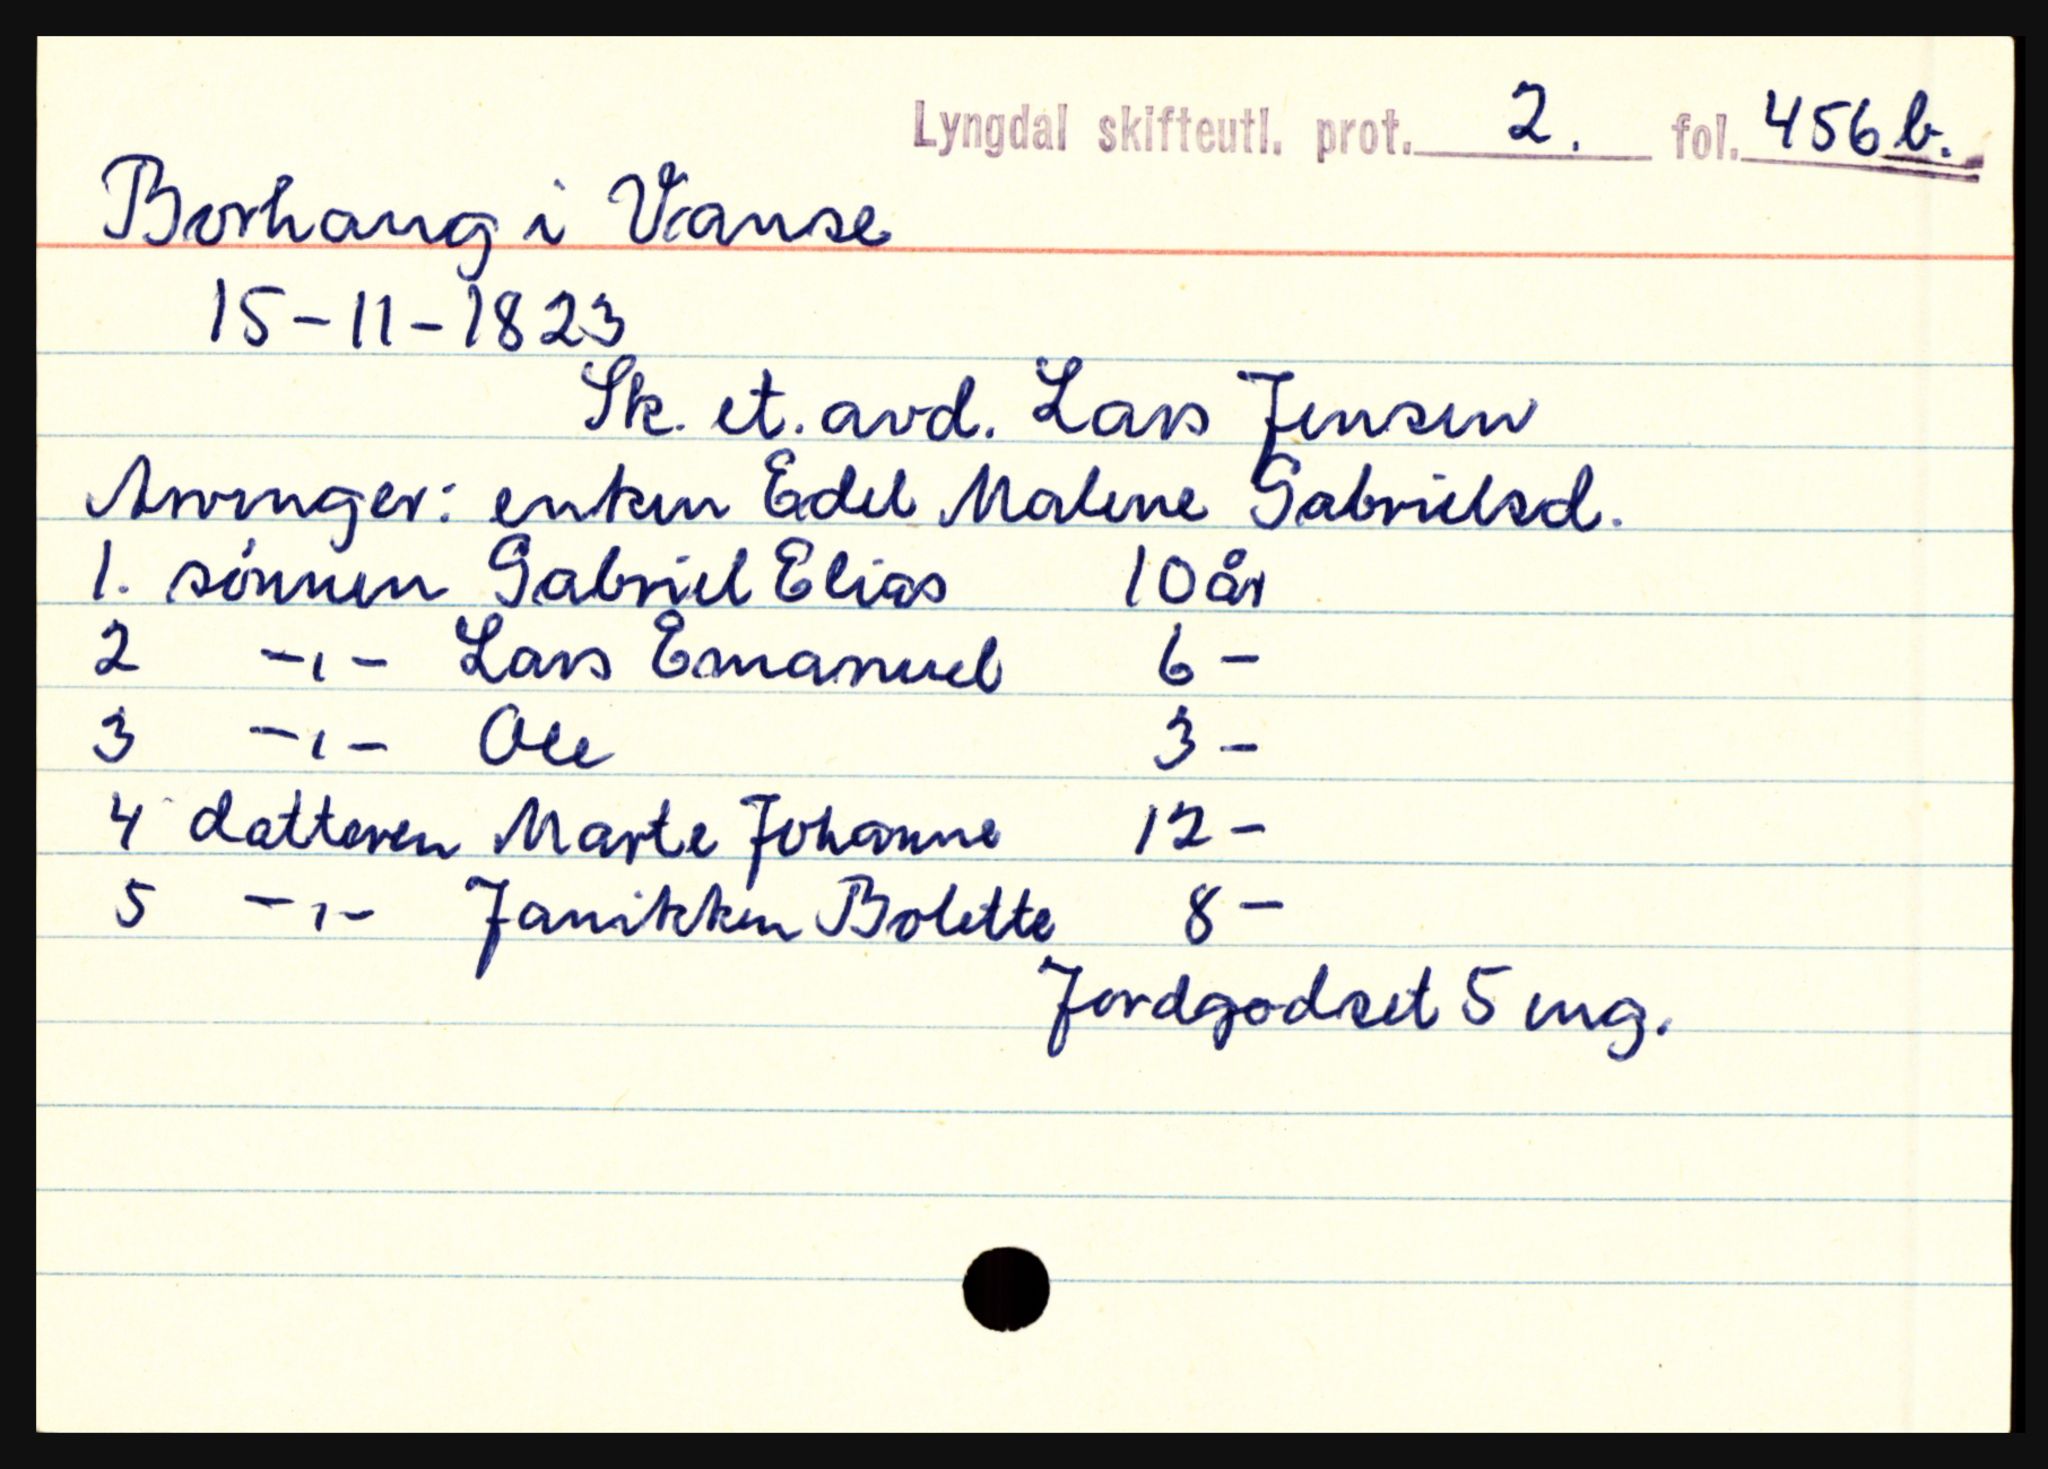 Lyngdal skifteutl. prot. 2. fol. 456 b.
Borhaug i Vanse
15-11-1823
Sk. et. avd. Lars Jensen
Arvinger: enken Edel Malene Gabrielsd.
1. sønnen Gabriel Elias 10 år
2 -,,- Lars Emanuel 6 -
3 -,,- Ole 3 -
4 datteren Marte Johanne 12 -
5 -,,- Janikken Bolette 8 -
Jordgodset 5 eng.